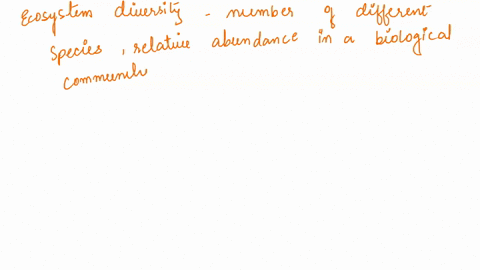 Ecosystem diversity - number of different
species, relative abundance in a biological